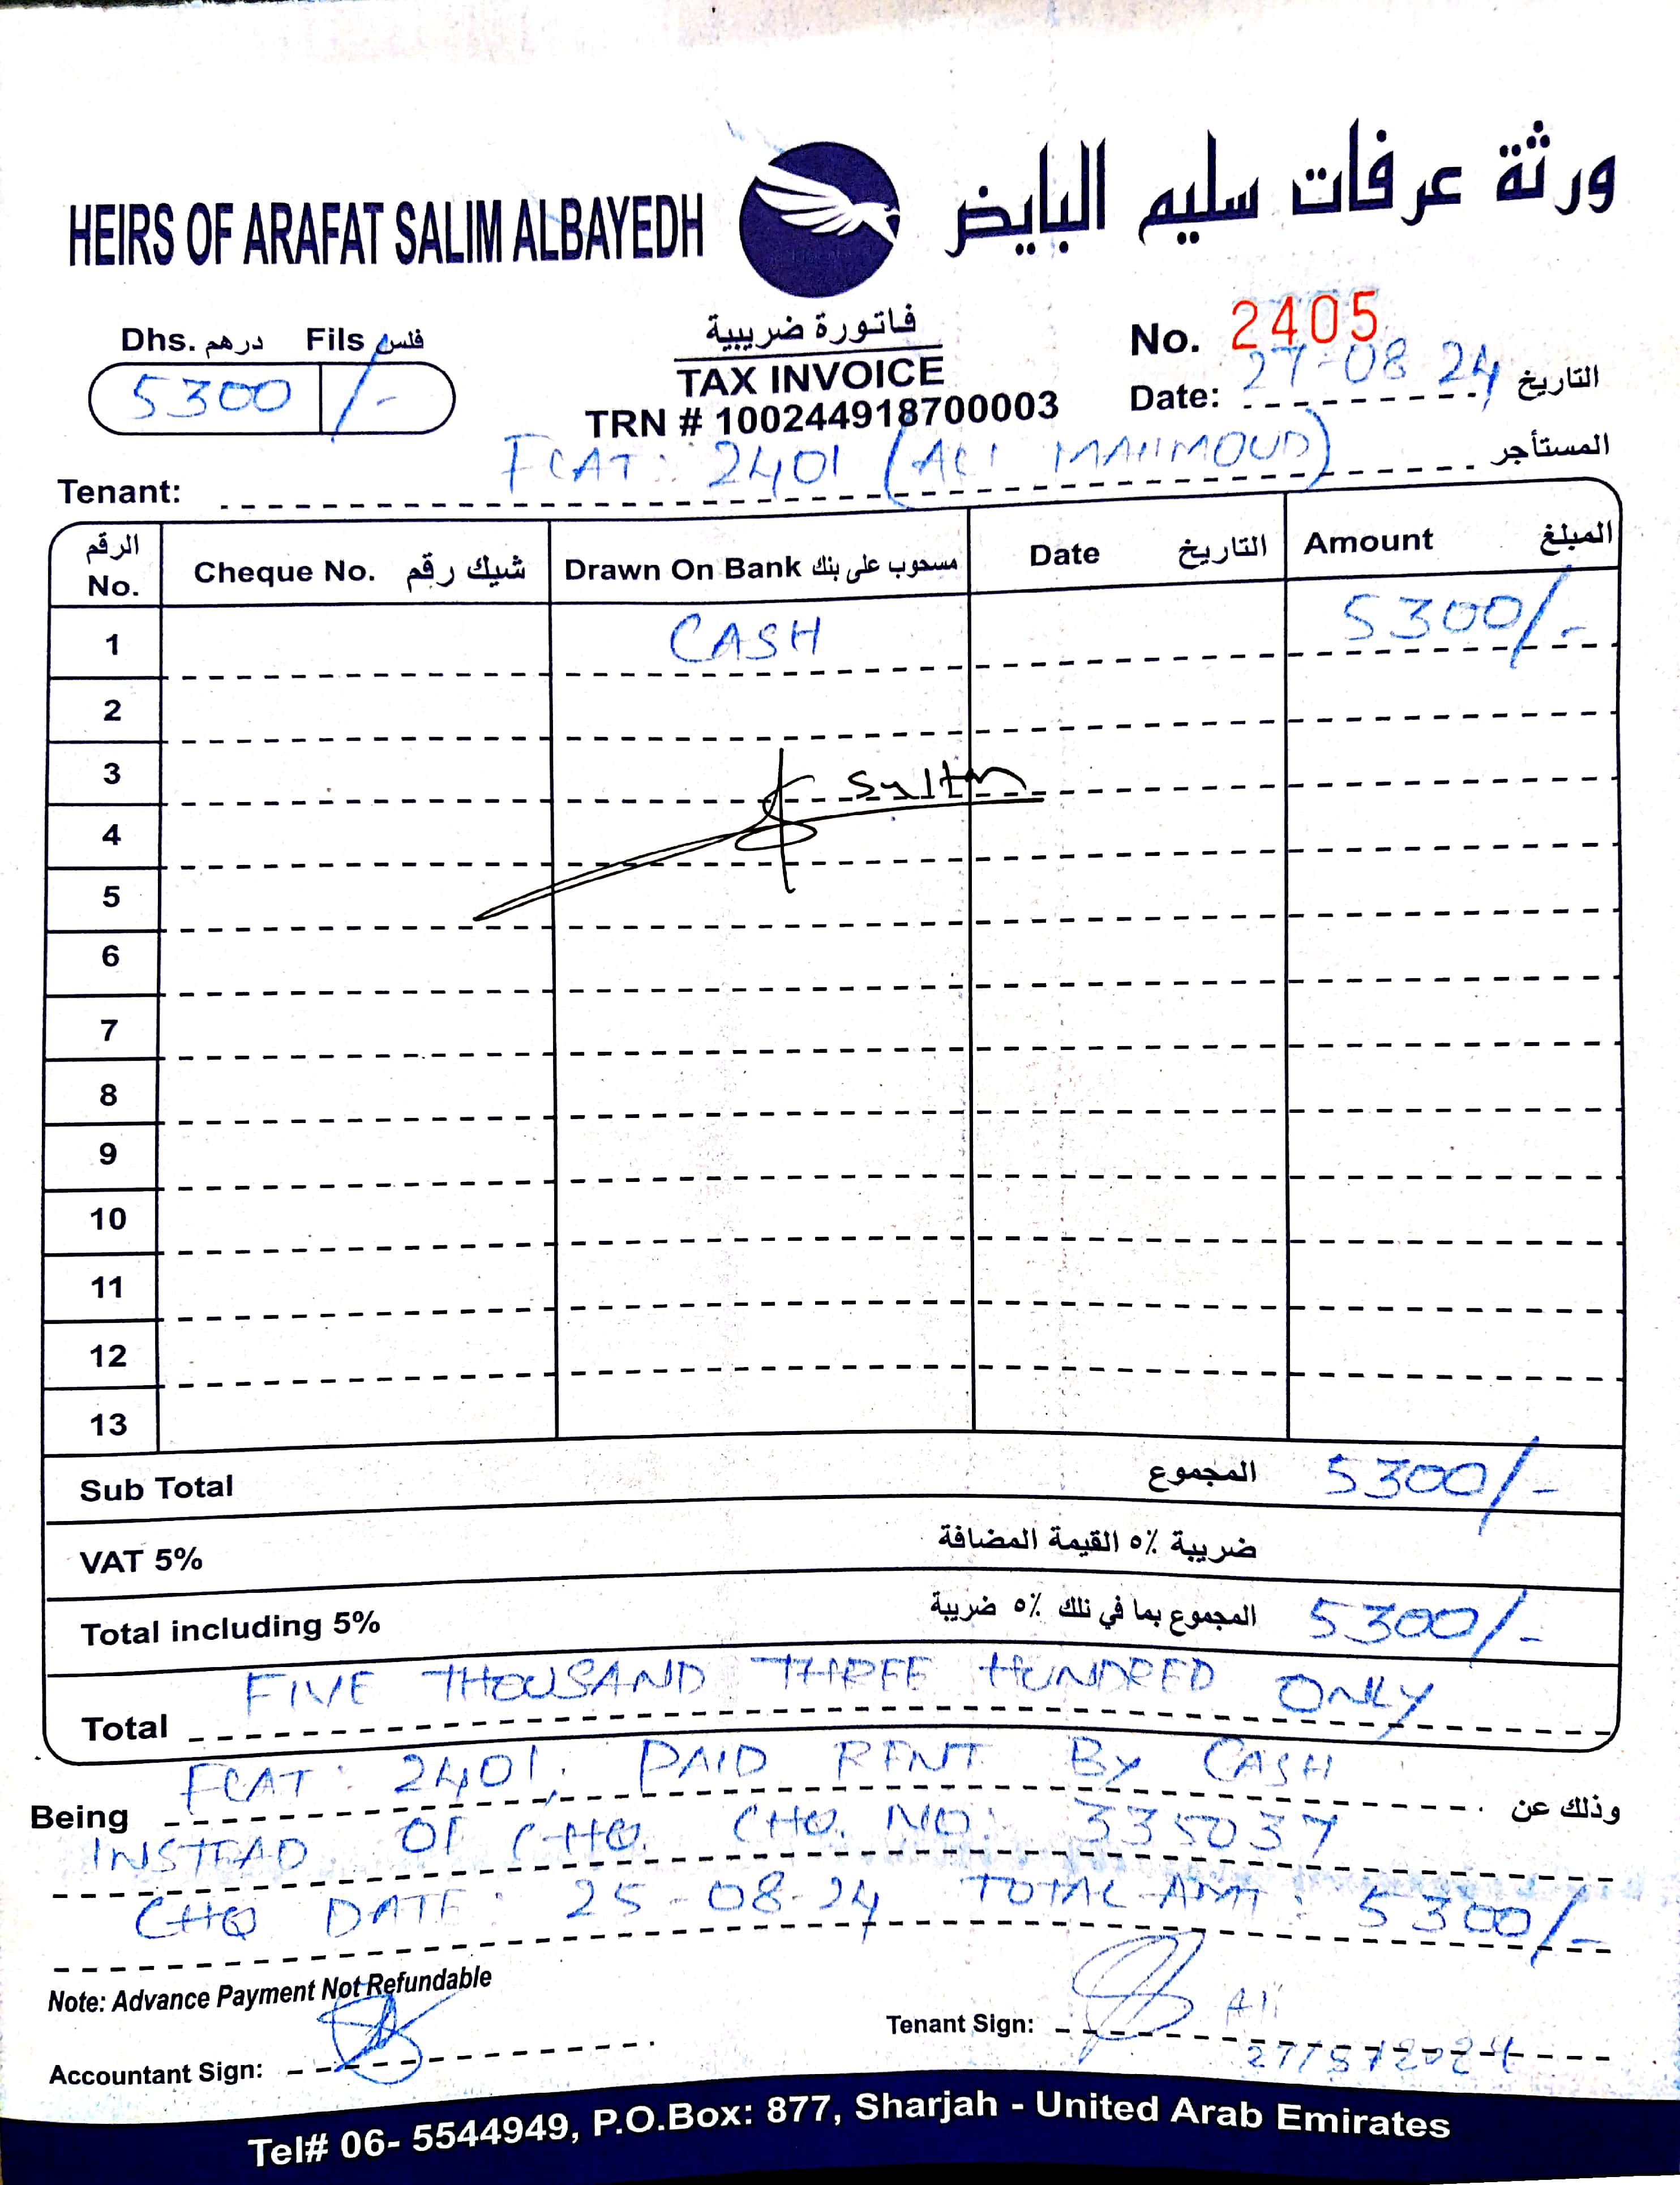 HEIRS OF ARAFAT SALIM ALBAYEDH ورثة عرفات سليم البايض
Dhs. درهم Fils فلس
5300 /-
فاتورة ضريبية
TAX INVOICE
TRN # 100244918700003
No. 2405
Date: 27-08 24 التاريخ
Tenant: FLAT: 2401 (ALI MAHMOUD) المستأجر
الرقم No. Cheque No. شيك رقم Drawn On Bank مسحوب على بنك Date التاريخ Amount المبلغ
1 CASH 5300/-
2
3 Sultan
4
5
6
7
8
9
10
11
12
13
Sub Total المجموع 5300/-
VAT 5% ضريبة ٥٪ القيمة المضافة
Total including 5% المجموع بما في ذلك ٥٪ ضريبة 5300/-
Total FIVE THOUSAND THREE HUNDRED ONLY
Being FLAT: 2401, PAID RENT BY CASH وذلك عن
INSTEAD OF CHQ. CHQ. NO: 335037
CHQ DATE: 25-08-24 TOTAL AMT: 5300/-
Note: Advance Payment Not Refundable
Accountant Sign:
Tenant Sign: Ali
27/8/2024
Tel# 06- 5544949, P.O.Box: 877, Sharjah - United Arab Emirates